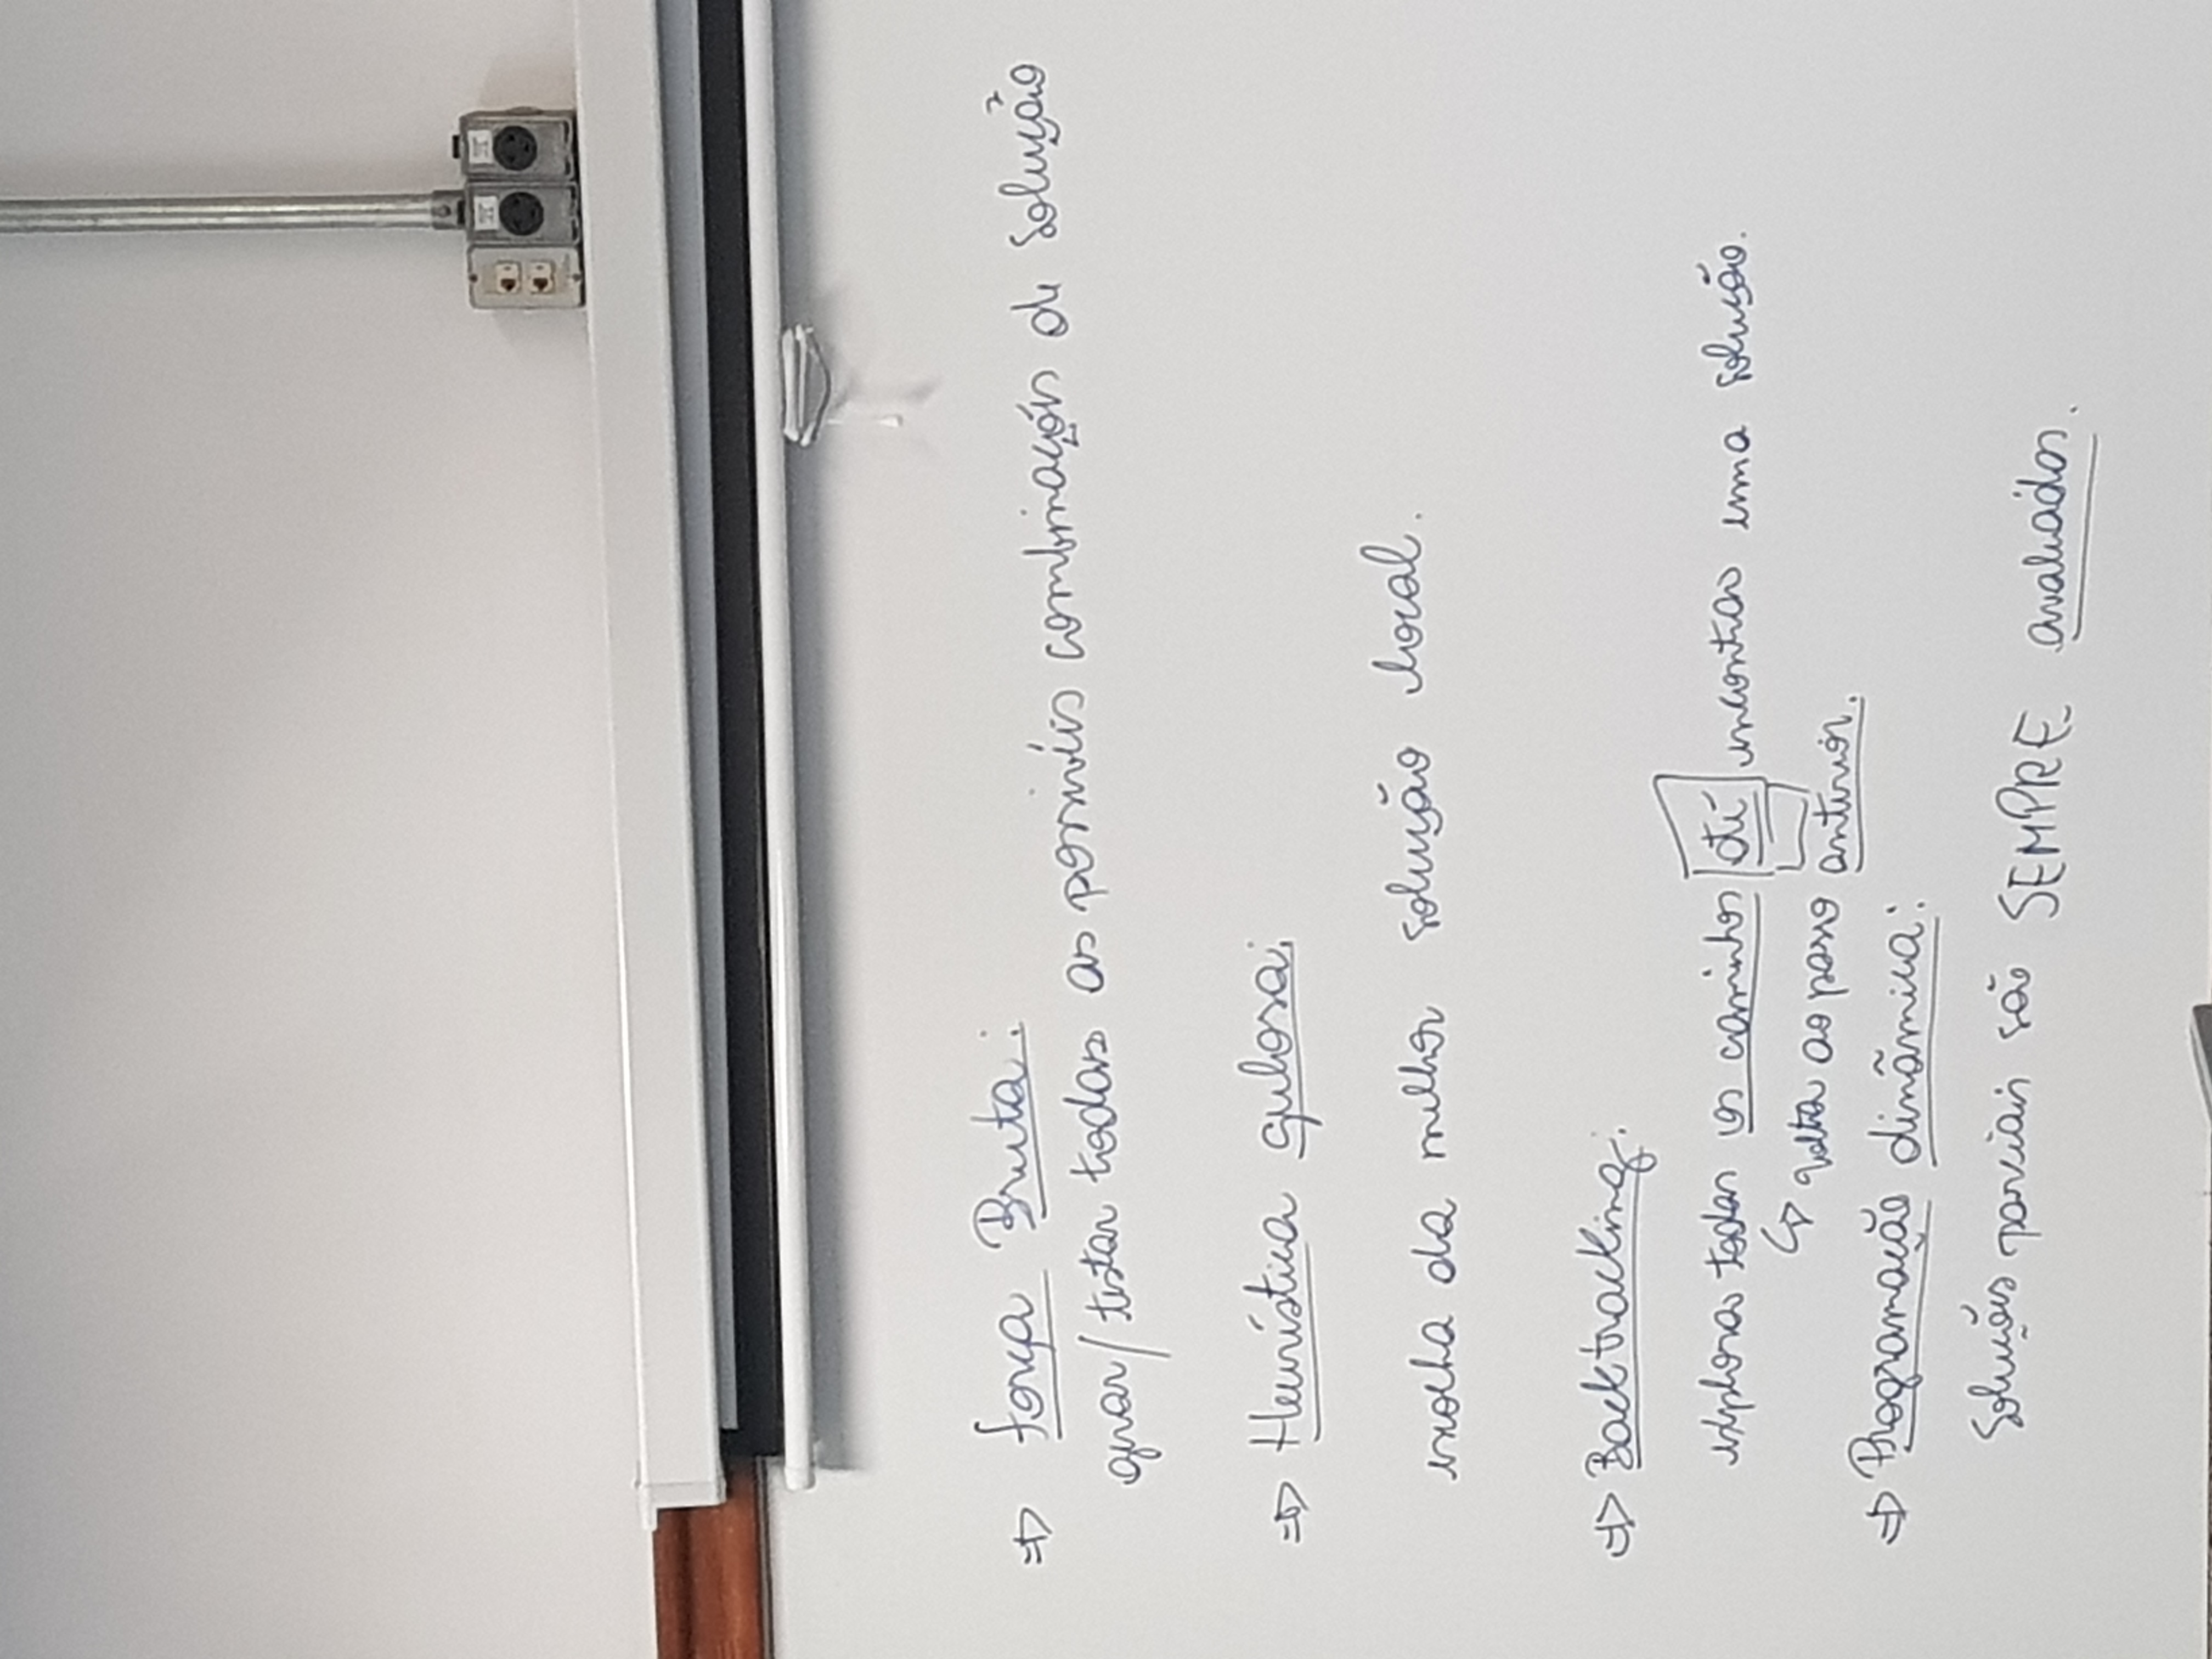 ⇒ Força Bruta:
gerar/testar todas as possíveis combinações de solução
⇒ Heurística gulosa:
escolha da melhor solução local.
⇒ Backtracking:
explorar todos os caminhos até encontrar uma solução.
↳ volta ao passo anterior.
⇒ Programação dinâmica:
Soluções parciais são SEMPRE avaliados.